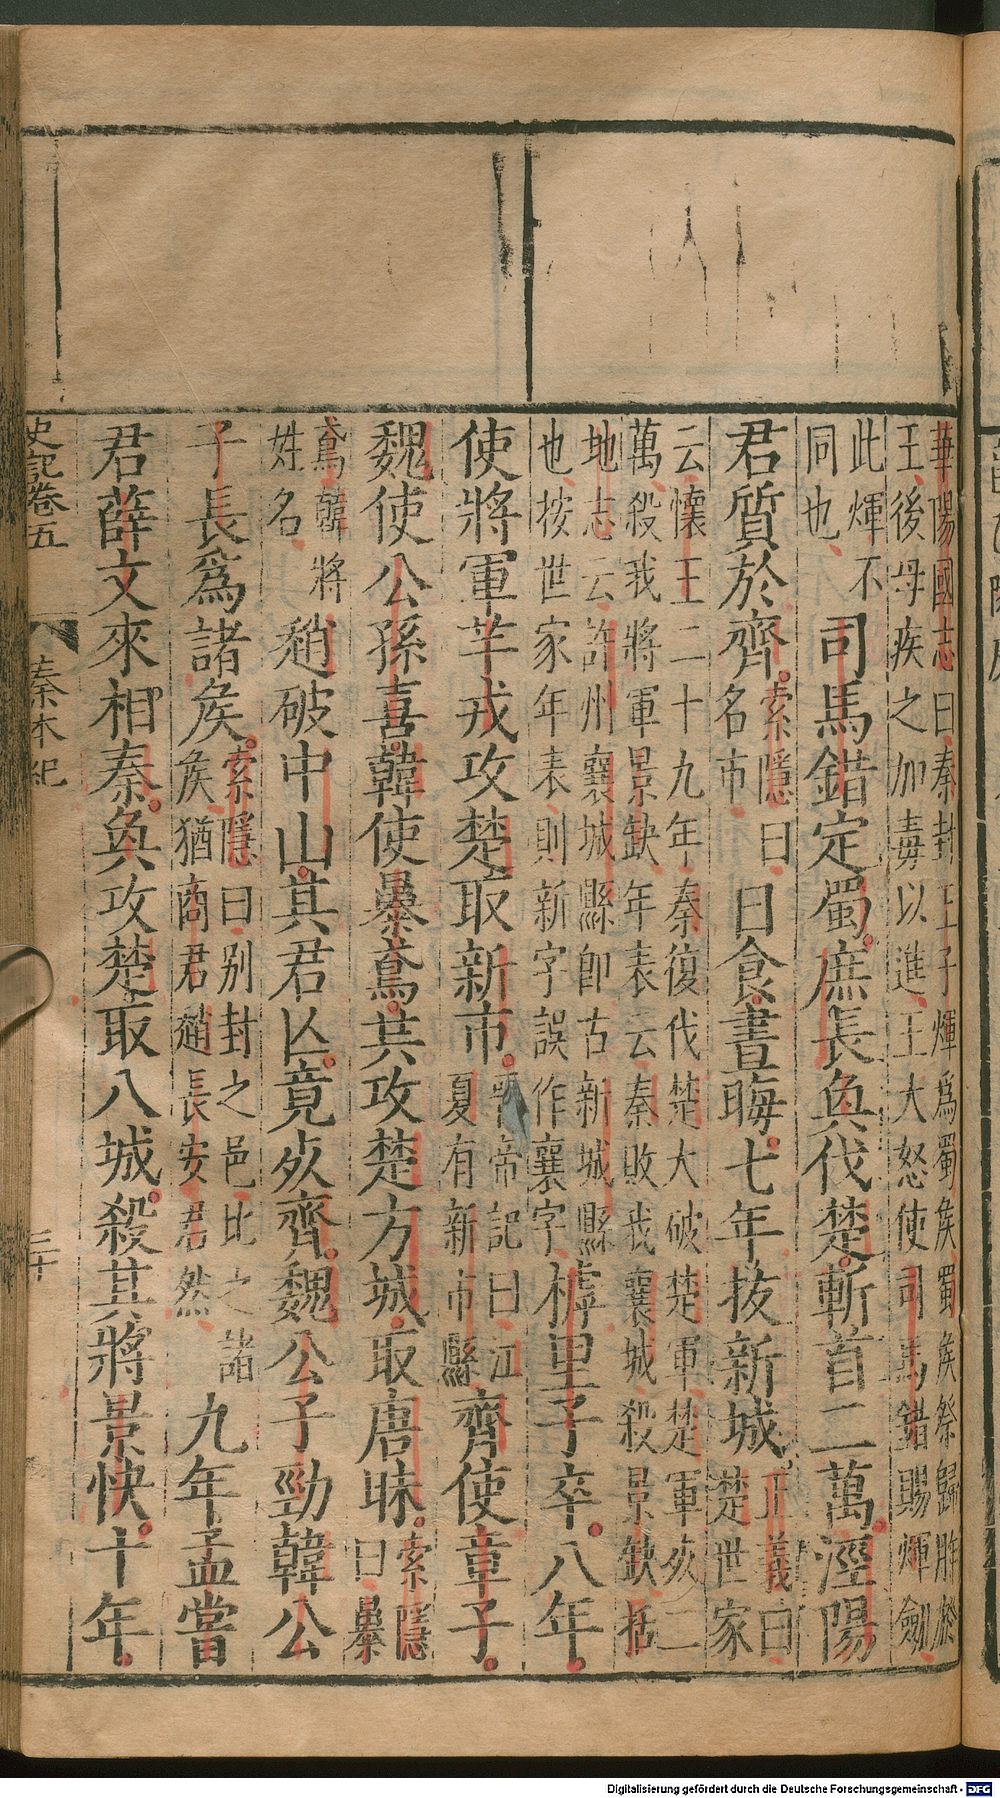 華陽國志曰秦封王子煇爲蜀矦蜀矦祭歸胙於
王後母疾之加毒以進王大怒使司馬錯賜煇劍
此煇不
同也
司馬錯定蜀庶長奐伐楚斬首二萬涇陽
君質於齊
索隱曰
名市
日食晝晦七年拔新城
正義曰
楚世家
云懷王二十九年秦復伐楚大破楚軍楚軍死二
萬殺我將軍景缺年表云秦敗我襄城殺景缺括
地志云許州襄城縣卽古新城縣
也按世家年表則新字誤作襄字
樗里子卒八年
使將軍羋戎攻楚取新市
晉帝記曰江
夏有新市縣
齊使章子
魏使公孫喜韓使暴鳶共攻楚方城取唐昧
索隱
曰暴
鳶韓將
姓名
趙破中山其君亾竟死齊魏公子勁韓公
子長爲諸矦
索隱曰别封之邑比之諸
矦猶商君趙長安君然
九年孟嘗
君薛文來相秦奐攻楚取八城殺其將景快十年
史記卷五
秦本紀
三十
Digitalisierung gefördert durch die Deutsche Forschungsgemeinschaft - DFG